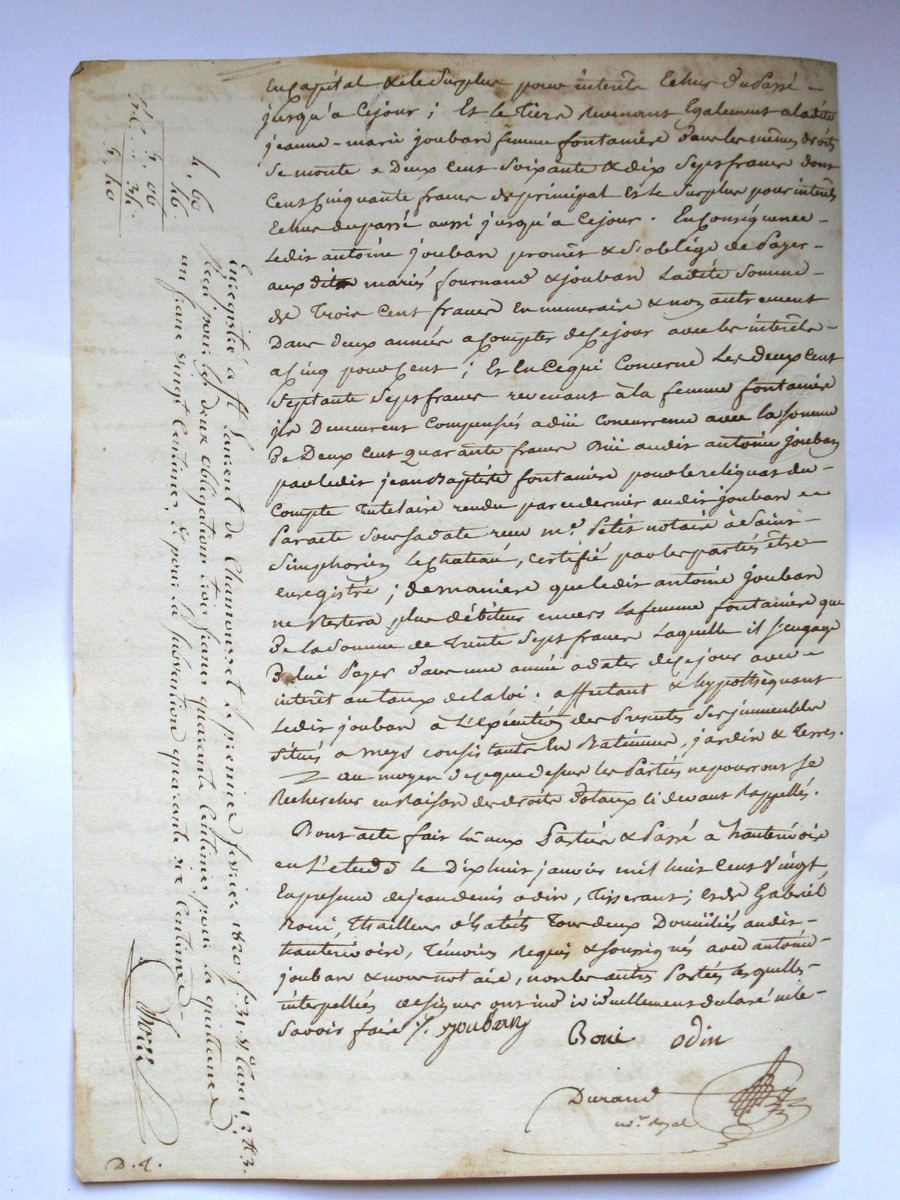 en Capital & le Surplus pour interêts Echus du passé
jusqu'à Cejour ; Et le Tiers Revenant Egalement a ladite
jeanne-marie jouban femme fontaniere dans les mêmes droits
Se monte a Deux cent Soixante & dix Sept francs dont
Cent Cinquante francs de principal et le Surplus pour interêts
Echus du passé aussi jusqu'à Cejour. En Conséquence
Ledit antoine jouban promêt & S'oblige de Payer
aux dits mariés fournand & jouban Ladite Somme
de Trois Cent francs en numeraire & non autrement
Dans deux années a Compter de Cejour avec les interêts
a Cinq pour Cent ; Et En Cequi Concerne Les deux Cent
Septante Sept francs revenant à la femme fontaniere
ils Demeurent Compensés a dûe Concurrence avec la Somme
de Deux Cent quarante francs dûe audit antoine jouban
par ledit jean Baptiste fontaniere pour le reliquat du
Compte Tutelaire rendu par ce dernier audit jouban
Par acte Sous Sa date reçu me. Petit notaire à Saint
Simphorien Le Chateau, Certifié par les parties être
enregistré ; de maniere que ledit antoine jouban
ne Restera plus débiteur envers La femme fontaniere que
De la Somme de Trente Sept francs Laquelle il S'engage
De lui Payer dans une année a dater de Cejour avec
interêt au taux de la loi. affectant & hypothequant
Ledit jouban à L'Exécution des Presentes Ses immeubles
Situés a meys Consistants En Batiments, jardin & Terres.
au moyen de ceque dessus les Parties ne pourront Se
Rechercher en Raison des droits dotaux Ci devant Rappellés.
Dont acte fait Lû aux Parties & Passé a hauterivoire
en L'etude le Dix huit janvier mil huit Cent Vingt,
En presence de jean denis odin, Tisserant ; et de Gabriel
Roni, Thailleur d'habits Tous deux Domiciliés audit
hauterivoire, Témoins Requis & Soussignés avec antoine
jouban & nous notaire, non les autres Parties lesquelles
interpellées de Signer ont individuellement déclaré ne le
Savoir faire ./. joubanj
Roni odin
Durand
nre. Royal
Enregistré à St Laurent de Chamousset le premier fevrier 1820. fo. 31. Vo.
Reçu pour les deux obligations trois francs quarante Centimes pour la quittance
un franc vingt Centimes, & pour la Subvention quarante six Centimes
4. 60
46
5. 06
34
5. 40
D. d.